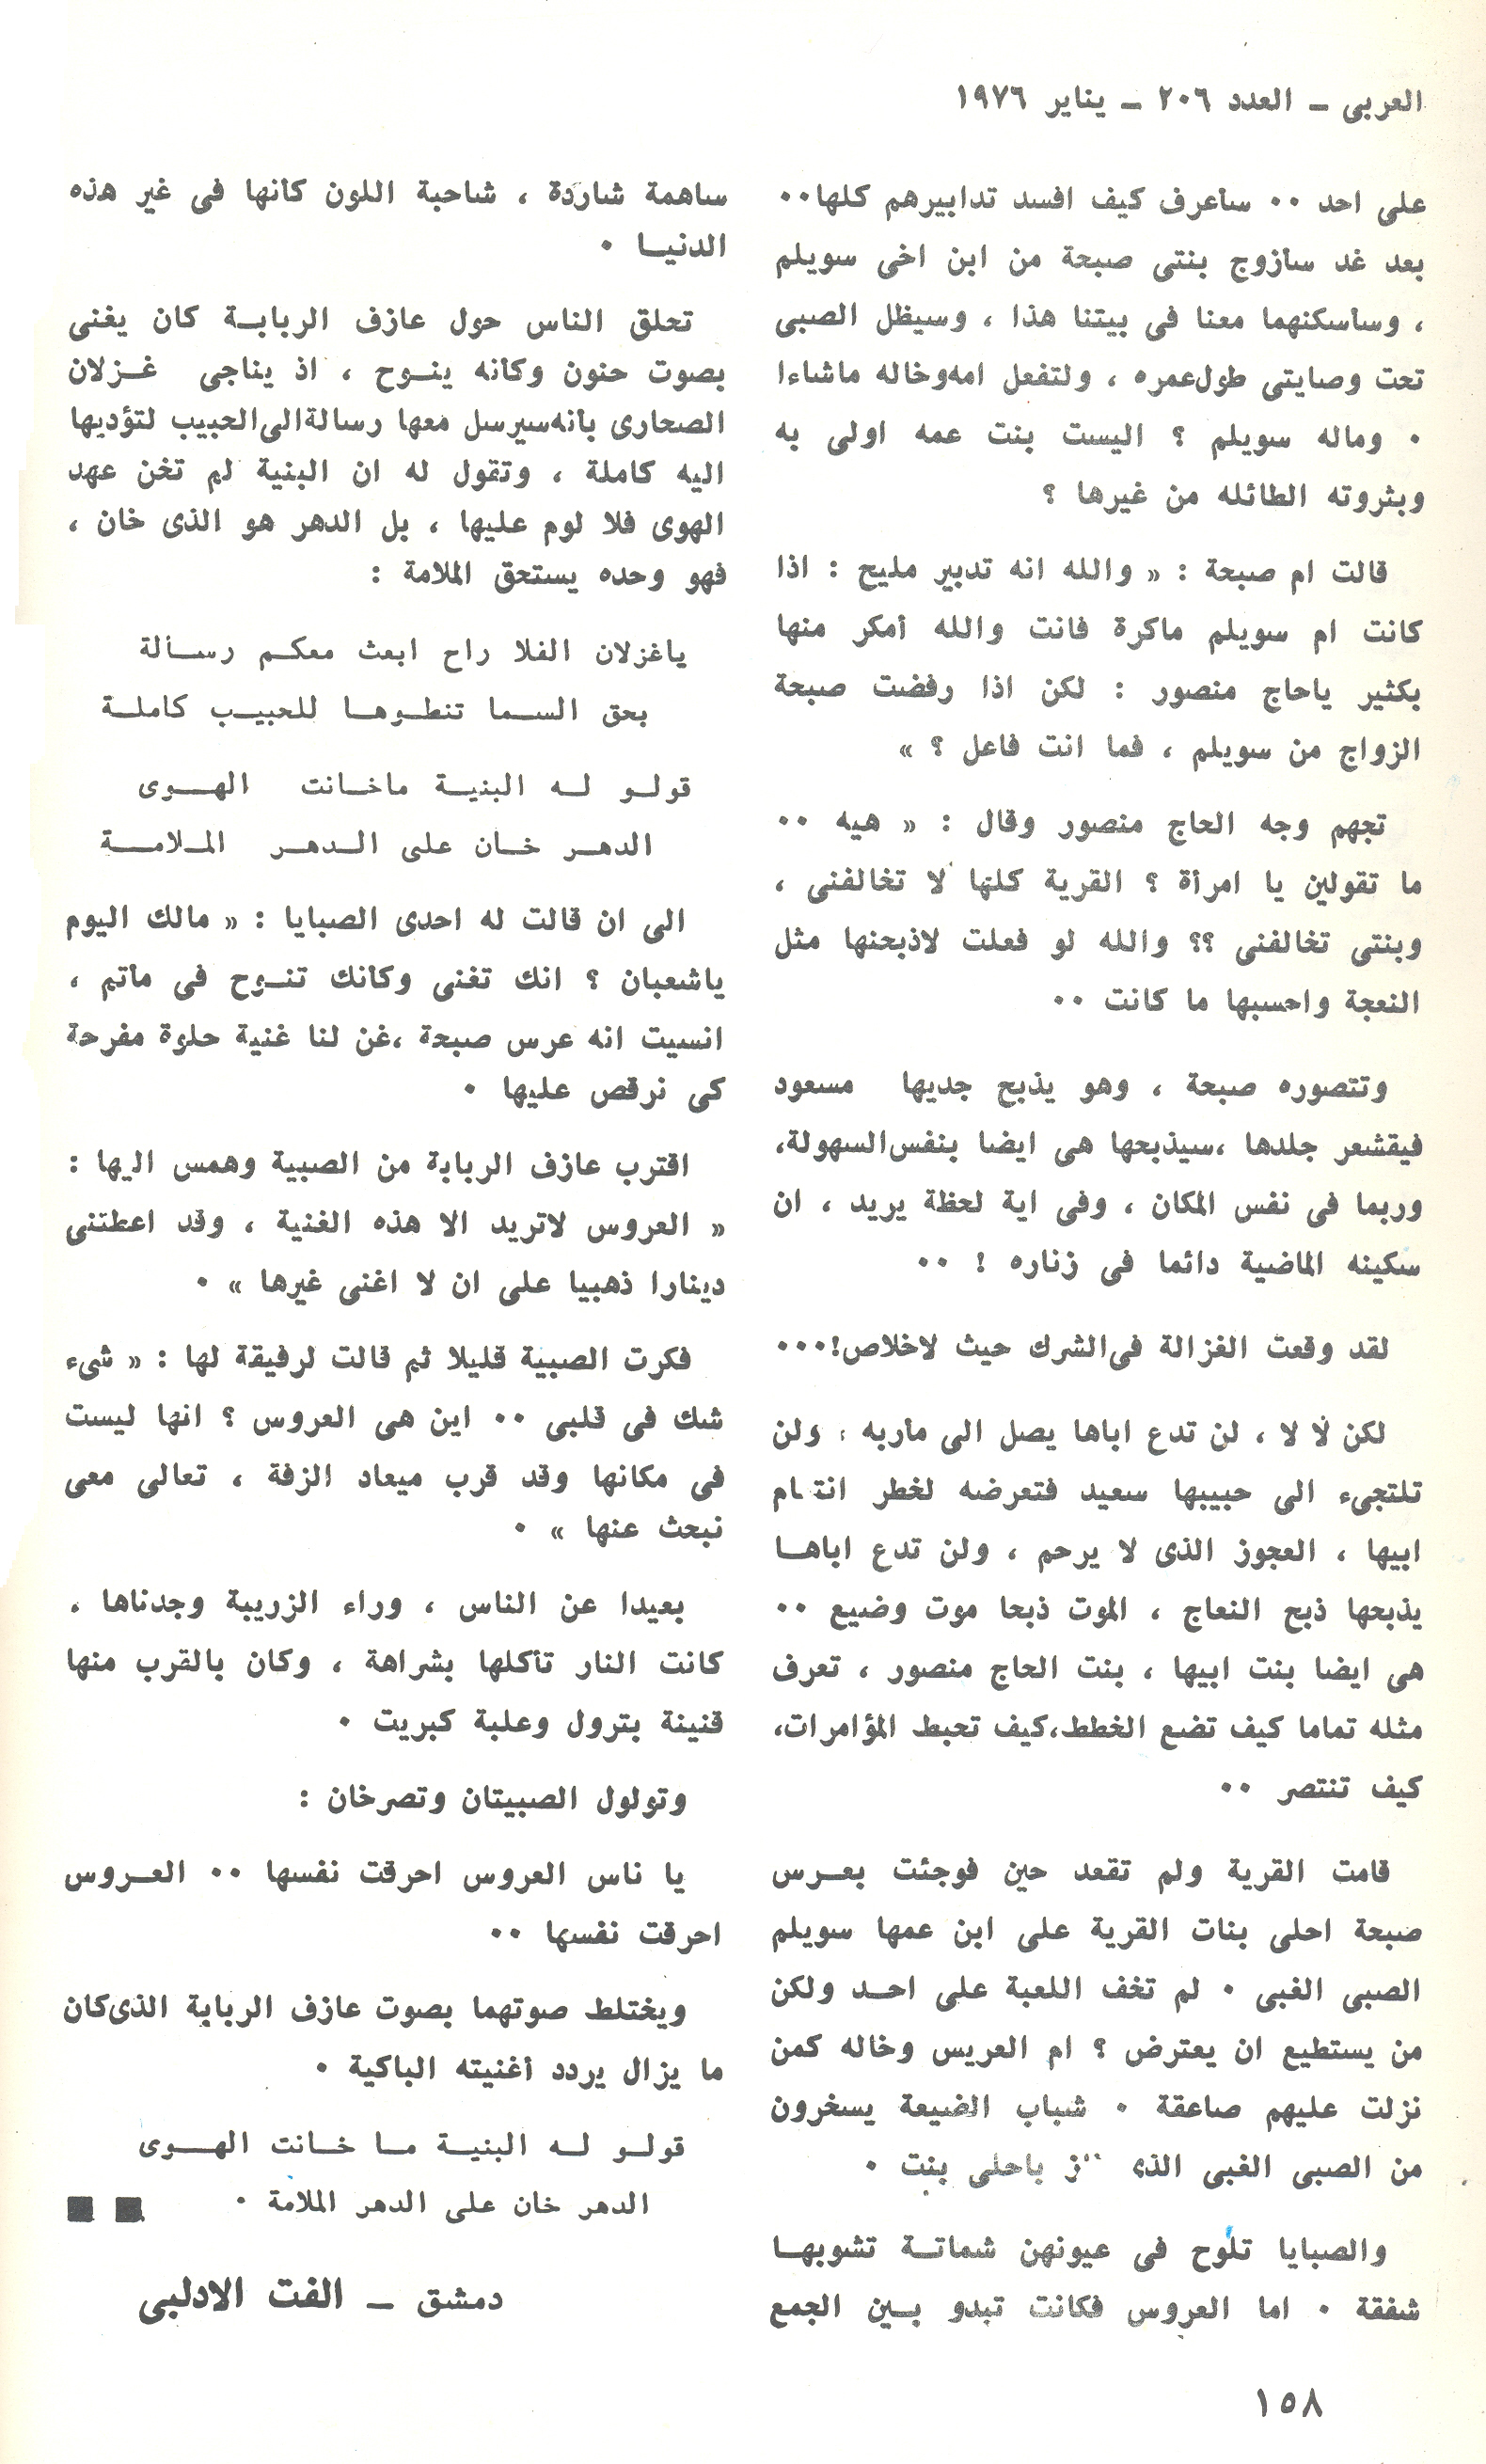 العربى ـ العدد ٢٠٦ ـ يناير ١٩٧٦
على احد ٠٠ ساعرف كيف افسد تدابيرهم كلها٠٠
بعد غد سازوج بنتى صبحة من ابن اخى سويلم
، وساسكنهما معنا فى بيتنا هذا ، وسيظل الصبى
تحت وصايتى طول عمره ، ولتفعل امه وخاله ماشاءا
٠ وماله سويلم ؟ اليست بنت عمه اولى به
وبثروته الطائله من غيرها ؟
قالت ام صبحة : « والله انه تدبير مليح : اذا
كانت ام سويلم ماكرة فانت والله أمكر منها
بكثير ياحاج منصور : لكن اذا رفضت صبحة
الزواج من سويلم ، فما انت فاعل ؟ »
تجهم وجه الحاج منصور وقال : « هيه ٠٠
ما تقولين يا امرأة ؟ القرية كلها لا تخالفنى ،
وبنتى تخالفنى ؟؟ والله لو فعلت لاذبحنها مثل
النعجة واحسبها ما كانت ٠٠
وتتصوره صبحة ، وهو يذبح جديها مسعود
فيقشعر جلدها ،سيذبحها هى ايضا بنفس السهولة،
وربما فى نفس المكان ، وفى اية لحظة يريد ، ان
سكينه الماضية دائما فى زناره ! ٠٠
لقد وقعت الغزالة فى الشرك حيث لاخلاص!٠٠٠
لكن لا لا ، لن تدع اباها يصل الى مأربه ، ولن
تلتجىء الى حبيبها سعيد فتعرضه لخطر
ابيها ، العجوز الذى لا يرحم ، ولن تدع اباهـا
يذبحها ذبح النعاج ، الموت ذبحا موت وضيع ٠٠
هى ايضا بنت ابيها ، بنت الحاج منصور ، تعرف
مثله تماما كيف تضع الخطط،كيف تحبط المؤامرات،
كيف تنتصر ٠٠
قامت القرية ولم تقعد حين فوجئت بعـرس
صبحة احلى بنات القرية على ابن عمها سويلم
الصبى الغبى ٠ لم تخف اللعبة على احـد ولكن
من يستطيع ان يعترض ؟ ام العريس وخاله كمن
نزلت عليهم صاعقة ٠ شباب الضيعة يسخرون
من الصبى الغبى الذى باحلى بنت ٠
والصبايا تلوح فى عيونهن شماتـة تشوبهـا
شفقة ٠ اما العروس فكانت تبدو بـين الجمع
ساهمة شاردة ، شاحبة اللون كانها فى غير هذه
الدنيـا ٠
تحلق الناس حول عازف الربابـة كان يغنى
بصوت حنون وكانه ينـوح ، اذ يناجى غـزلان
الصحارى بانه سيرسل معها رسالة الى الحبيب لتؤديها
اليه كاملة ، وتقول له ان البنية لم تخن عهد
الهوى فلا لوم عليها ، بل الدهر هو الذى خان ،
فهو وحده يستحق الملامة :
ياغزلان الفلا راح ابعث معكـم رسـالة
بحق السـما تنطـوهـا للحبيـب كاملـة
قولـو لـه البنيـة ماخـانت الهـوى
الدهـر خـان على الـدهـر المـلامـة
الى ان قالت له احدى الصبايا : « مالك اليوم
ياشعبان ؟ انك تغنى وكانك تنـوح فى ماتم ،
انسيت انه عرس صبحة ،غن لنا غنية حلوة مفرحة
كى نرقص عليها ٠
اقترب عازف الربابة من الصبية وهمس اليها :
« العروس لاتريد الا هذه الغنية ، وقد اعطتنى
دينارا ذهبيا على ان لا اغنى غيرها » ٠
فكرت الصبية قليلا ثم قالت لرفيقة لها : « شىء
شك فى قلبى ٠٠ اين هى العروس ؟ انها ليست
فى مكانها وقد قرب ميعاد الزفة ، تعالى معى
نبحث عنها » ٠
بعيدا عن الناس ، وراء الزريبة وجدناها .
كانت النار تأكلها بشراهة ، وكان بالقرب منها
قنينة بترول وعلبة كبريت ٠
وتولول الصبيتان وتصرخان :
يا ناس العروس احرقت نفسها ٠٠ العـروس
احرقت نفسها ٠٠
ويختلط صوتهما بصوت عازف الربابة الذى كان
ما يزال يردد أغنيته الباكية ٠
قولـو لـه البنيـة مـا خـانت الهـوى
الدهر خان على الدهر الملامة ٠
دمشق ـ الفت الادلبى
١٥٨